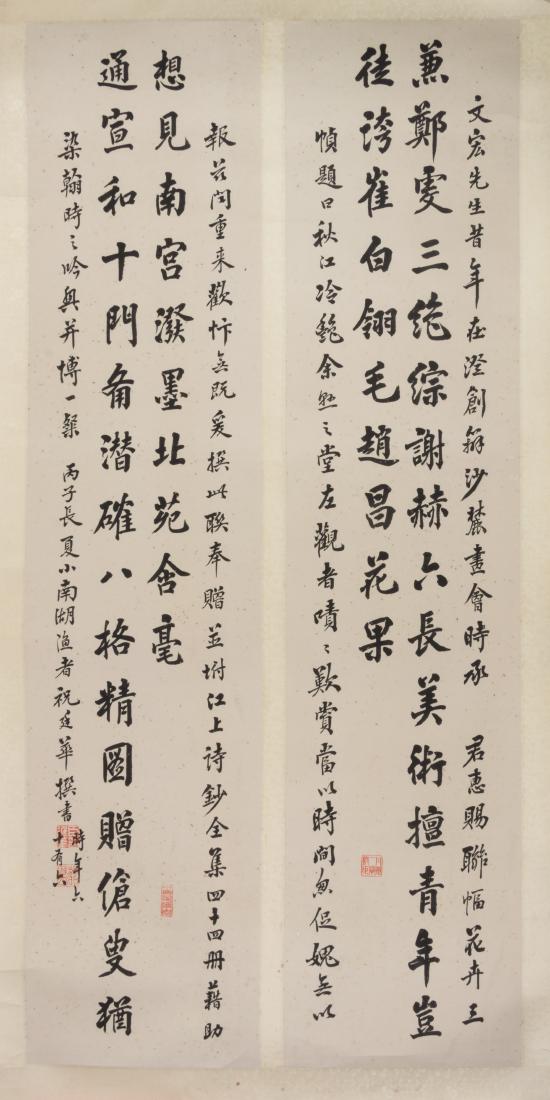 文宏先生昔年在澄創辦沙麓畫會時承 君惠賜聯幅花卉三
兼鄭虔三絶綜謝赫六長美術擅青年豈
徒誇崔白翎毛趙昌花果
幀題曰秋江冷艷余懸之堂左觀者嘖〻歎賞當以時間匆促媿無以
報茲閏重來歡忭無既爰撰此聯奉贈並坿江上詩鈔全集四十四冊藉助
想見南宮潑墨北苑含毫
通宣和十門角潛確八格精圖贈傖叟猶
染翰時之吟興并博一粲 丙子長夏小南湖漁者祝廷華撰書
時年六
十有六